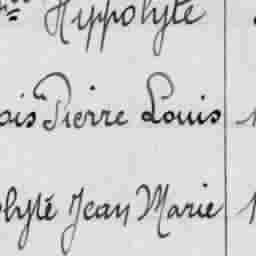 Hippolyte
ois Pierre Louis
olyte Jean Marie